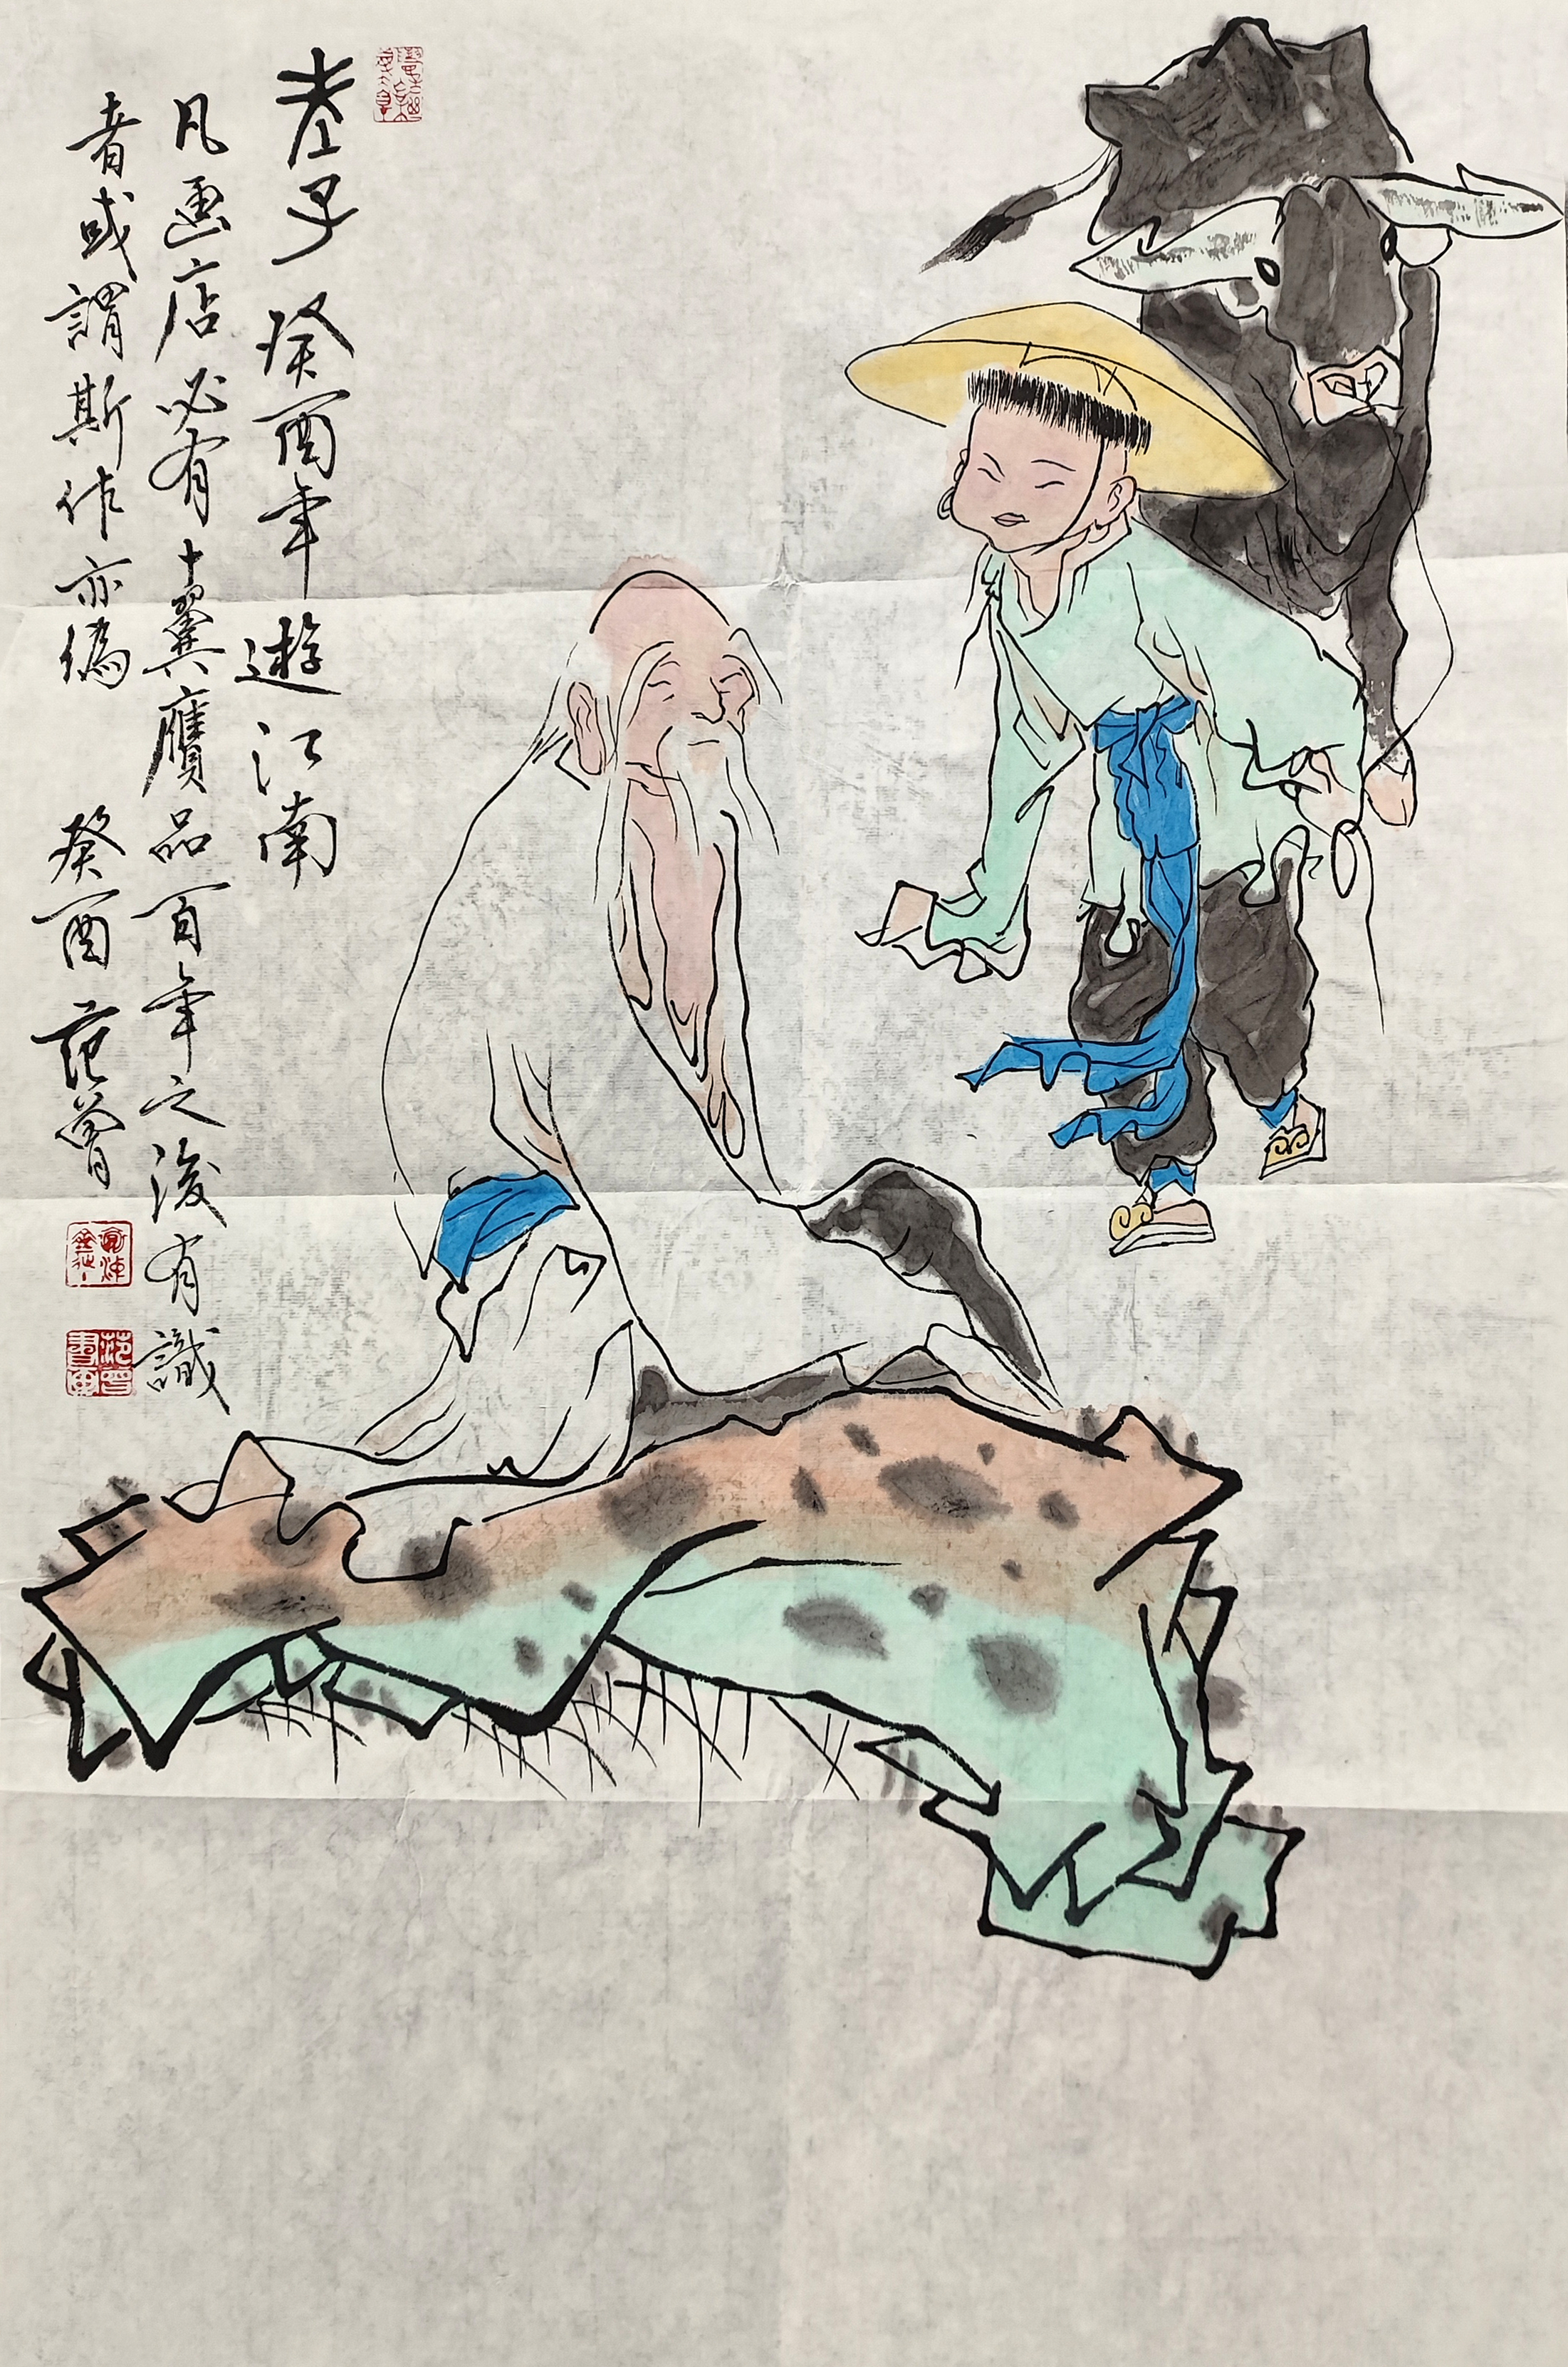 老子 癸酉年 遊江南
凡画店必有十翼贋品百年之後有識
者或謂斯作亦偽 癸酉 范曾